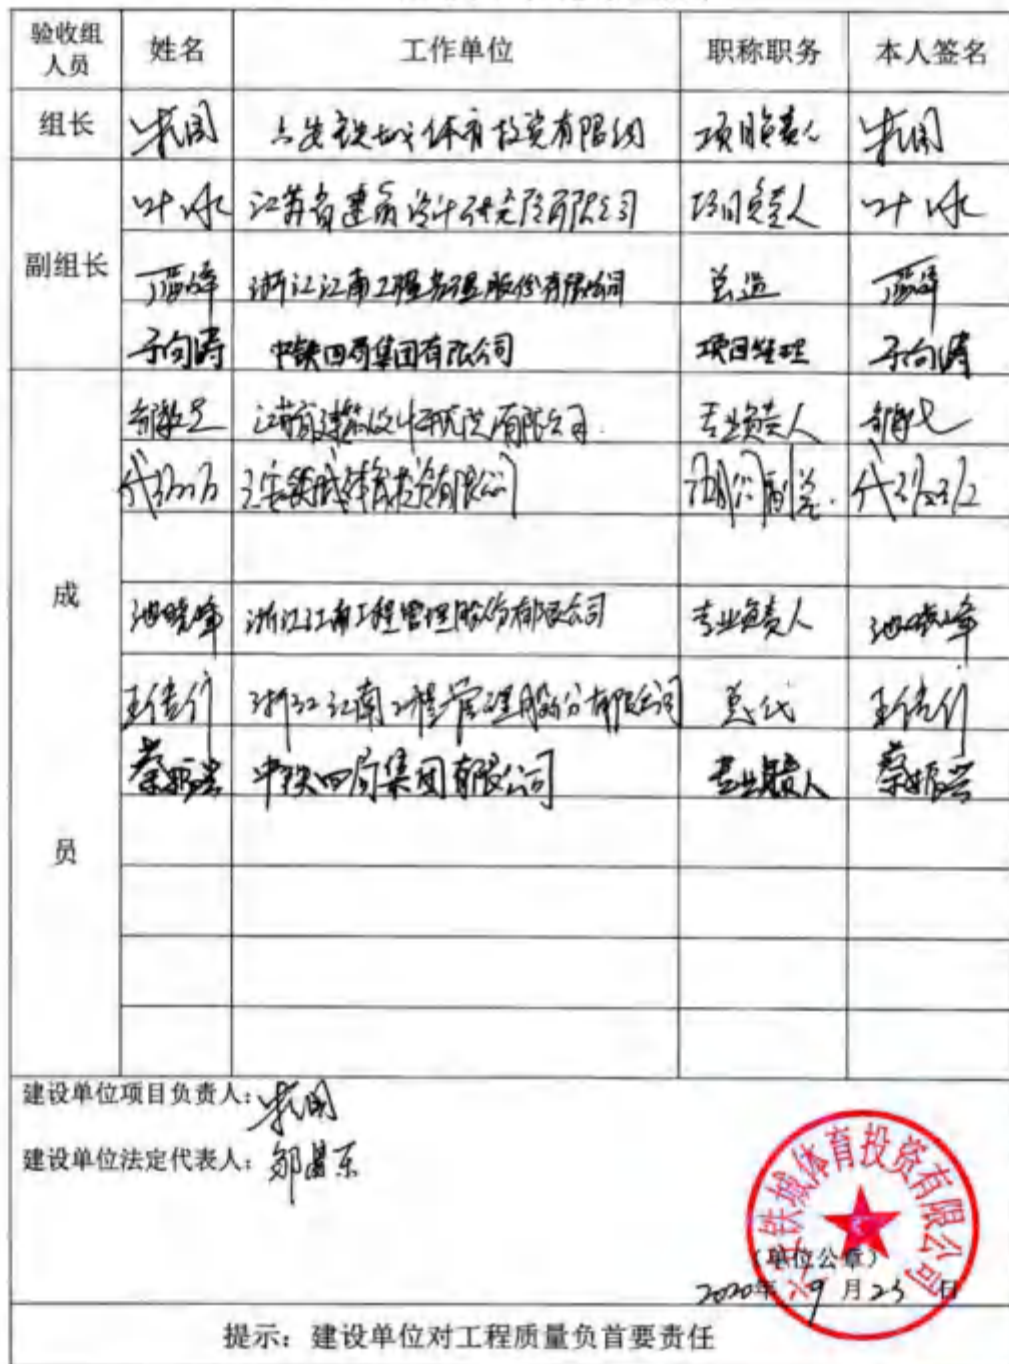 验收组人员 姓名 工作单位 职称职务 本人签名
组长 朱国 六安铁城体育投资有限公司 项目负责人 朱国
副组长 叶冰 江苏省建筑设计研究院有限公司 项目负责人 叶冰
浙江江南工程管理股份有限公司 总监
于向涛 中铁四局集团有限公司 项目经理 于向涛
江苏省建筑设计研究院有限公司 专业负责人
六安铁城体育投资有限公司
成员
池晓峰 浙江江南工程管理股份有限公司 专业负责人 池晓峰
浙江江南工程管理股份有限公司 总代
蔡振兴 中铁四局集团有限公司 专业负责人 蔡振兴
建设单位项目负责人：朱国
建设单位法定代表人：邹昌东
六安铁城体育投资有限公司
（单位公章）
2020年9月23日
提示：建设单位对工程质量负首要责任